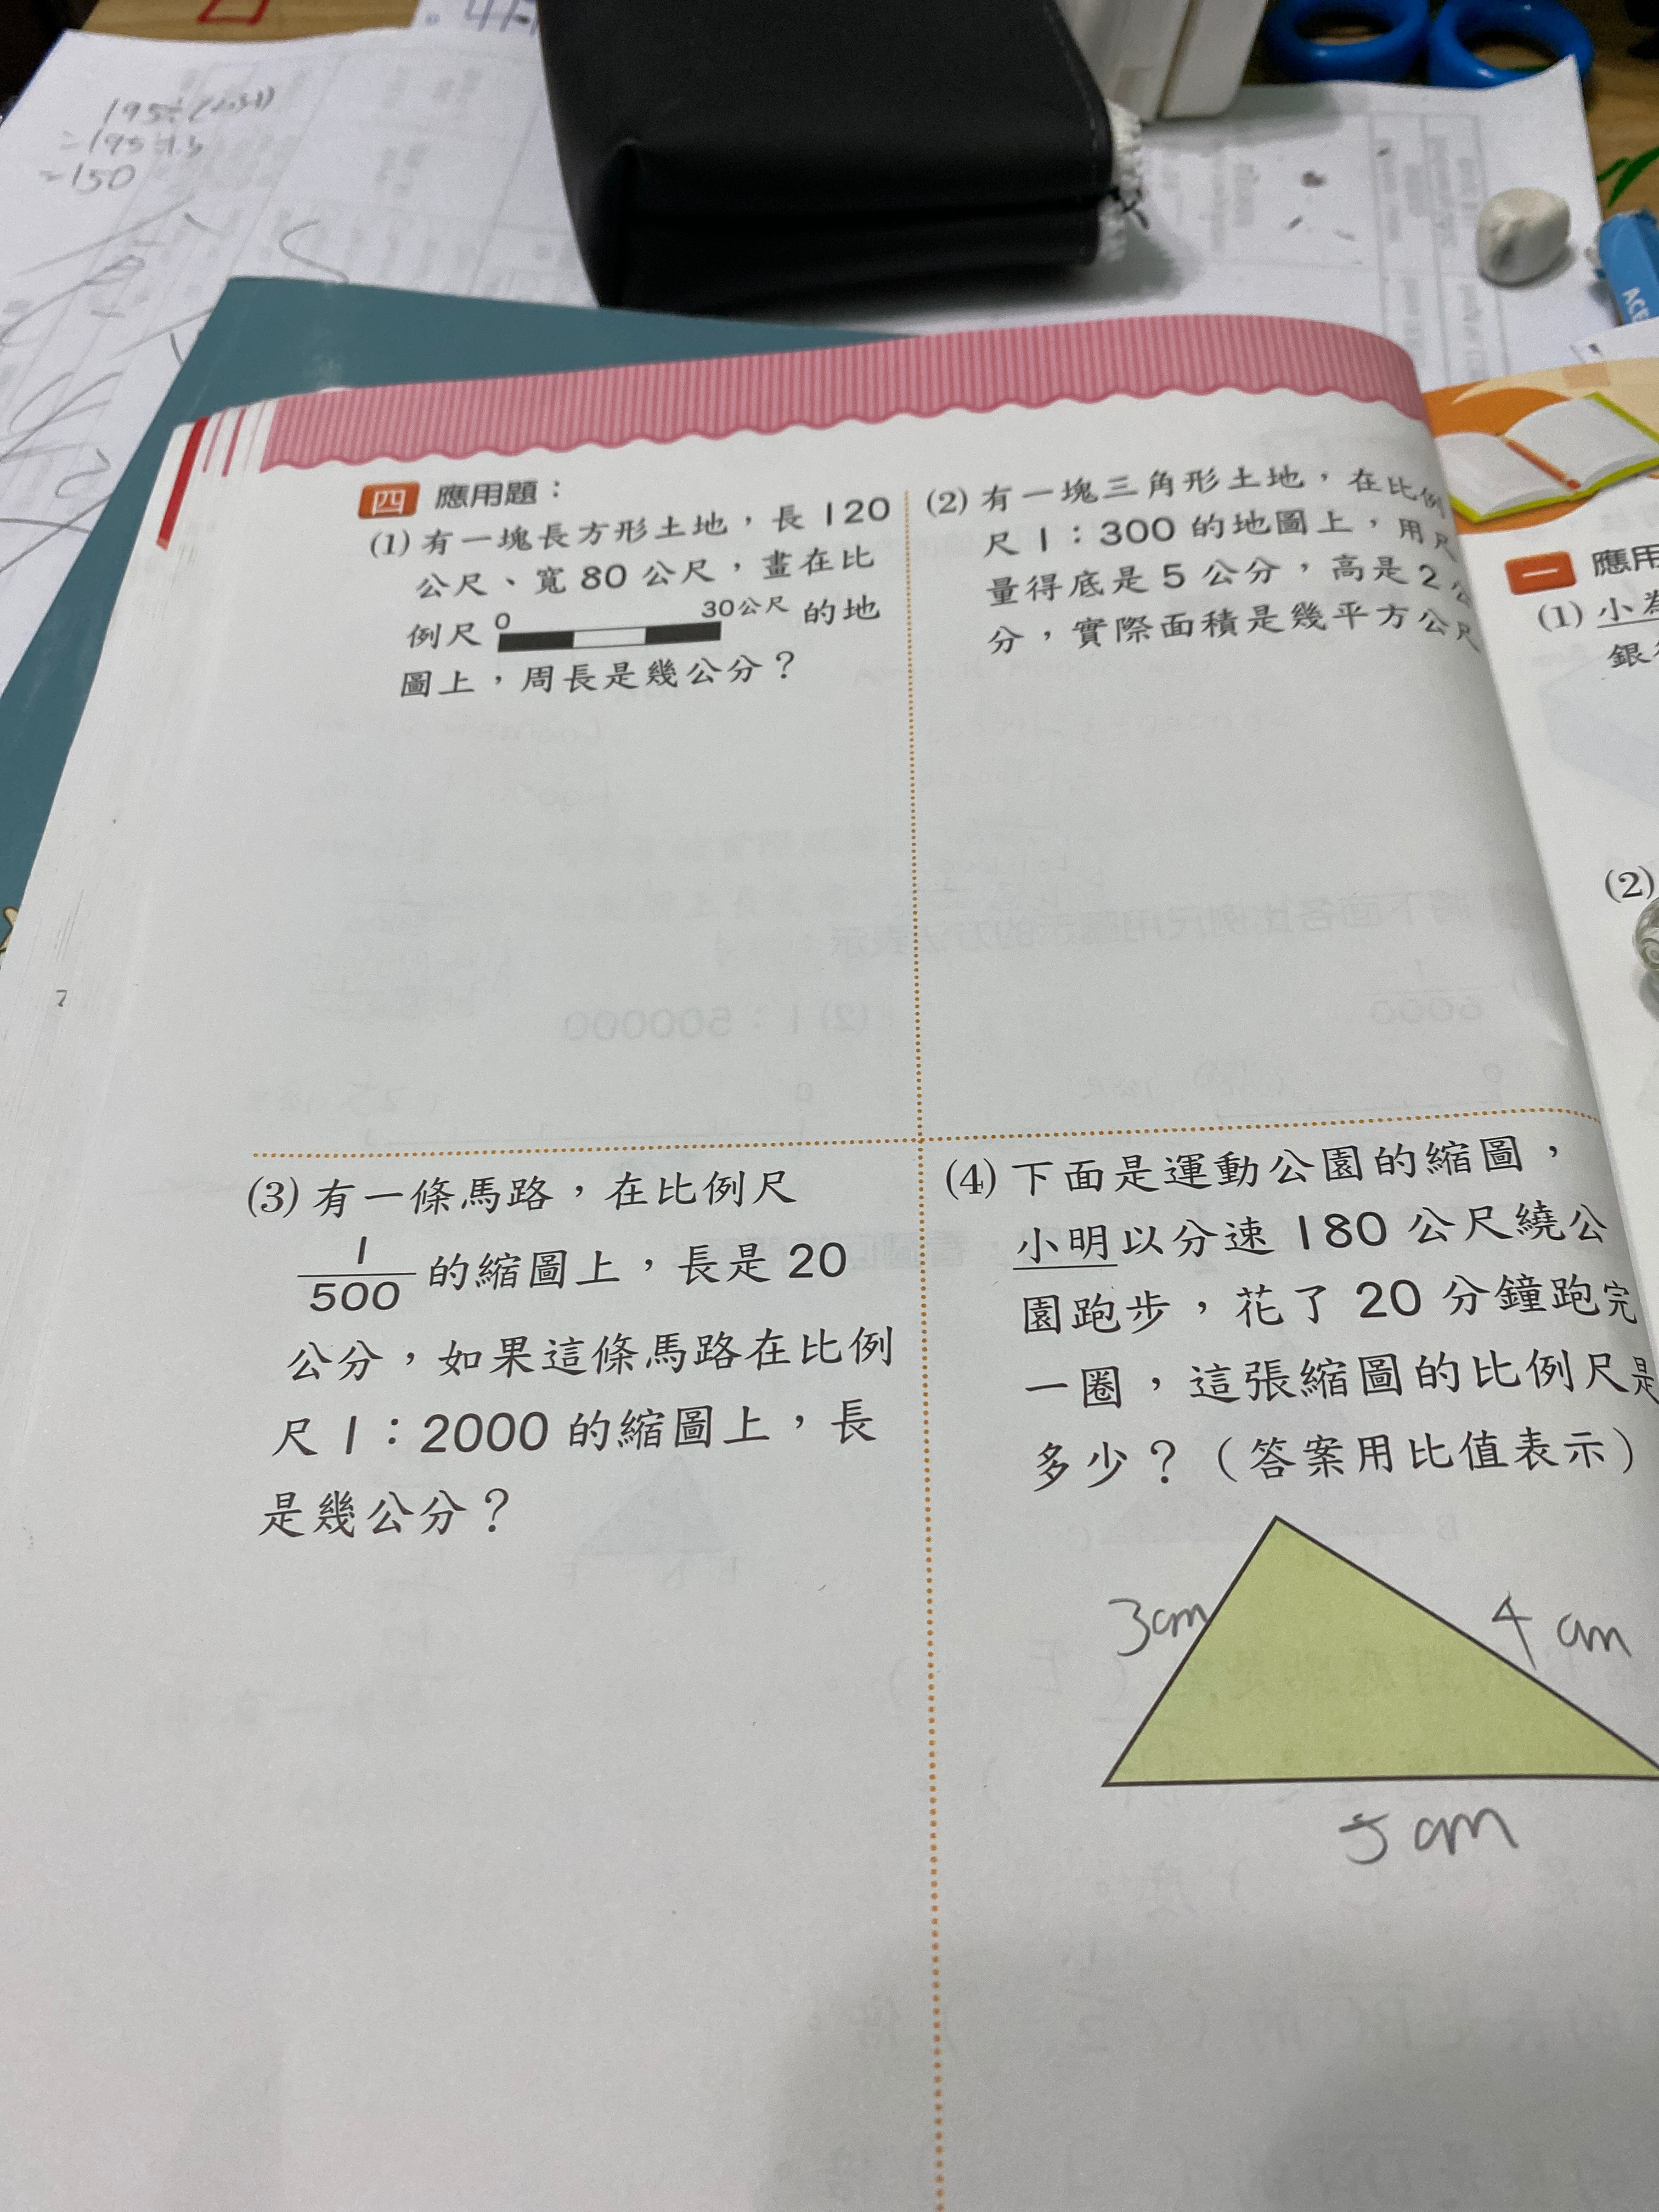 195÷(
=195÷1.3
=150
四 應用題：
(1) 有一塊長方形土地，長 120
公尺、寬 80 公尺，畫在比
例尺 0 30公尺 的地
圖上，周長是幾公分？
(2) 有一塊三角形土地，在比例
尺 1：300 的地圖上，用尺
量得底是 5 公分，高是 2 公
分，實際面積是幾平方公尺
(3) 有一條馬路，在比例尺
1/500 的縮圖上，長是 20
公分，如果這條馬路在比例
尺 1：2000 的縮圖上，長
是幾公分？
(4) 下面是運動公園的縮圖，
小明以分速 180 公尺繞公
園跑步，花了 20 分鐘跑完
一圈，這張縮圖的比例尺是
多少？（答案用比值表示）
3cm
4 cm
5 cm
一 應用
(1) 小為
銀
(2)